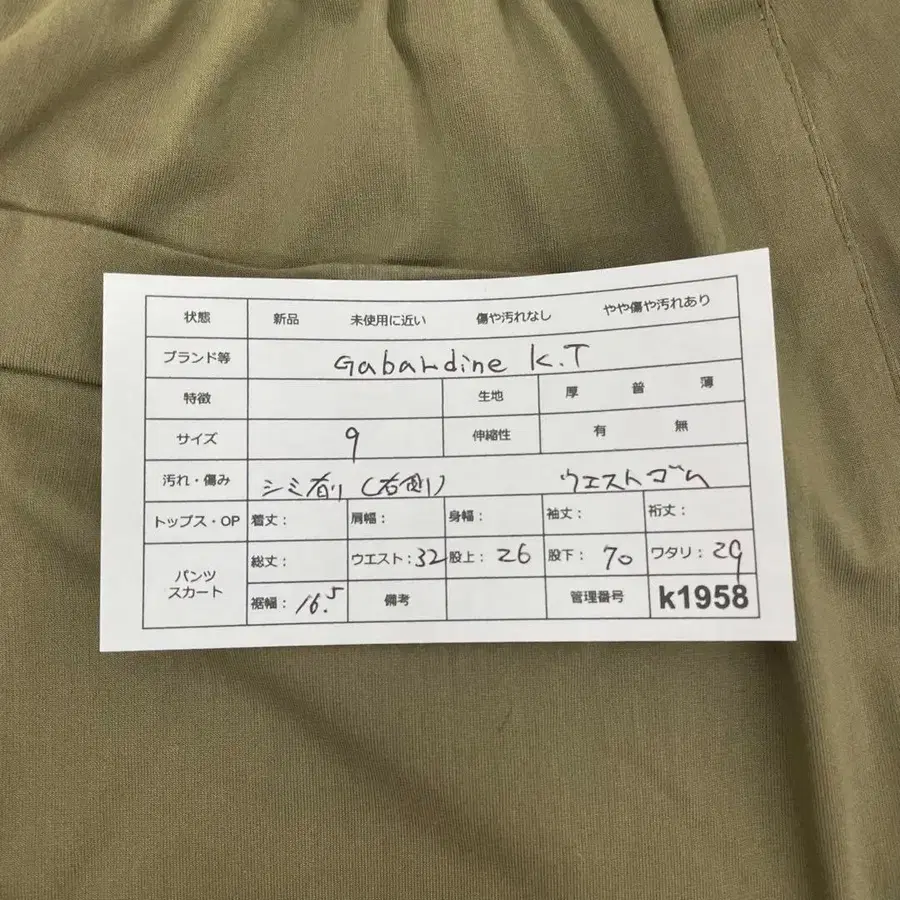 状態 新品 未使用に近い 傷や汚れなし やや傷や汚れあり
ブランド等 Gabardine K.T
特徴 生地 厚 普 薄
サイズ 9 伸縮性 有 無
汚れ・傷み シミ有り(右側) ウエストゴム
トップス・OP 着丈: 肩幅: 身幅: 袖丈: 裄丈:
パンツ スカート 総丈: ウエスト:32 股上:26 股下:70 ワタリ:29
裾幅:16.5 備考 管理番号 k1958